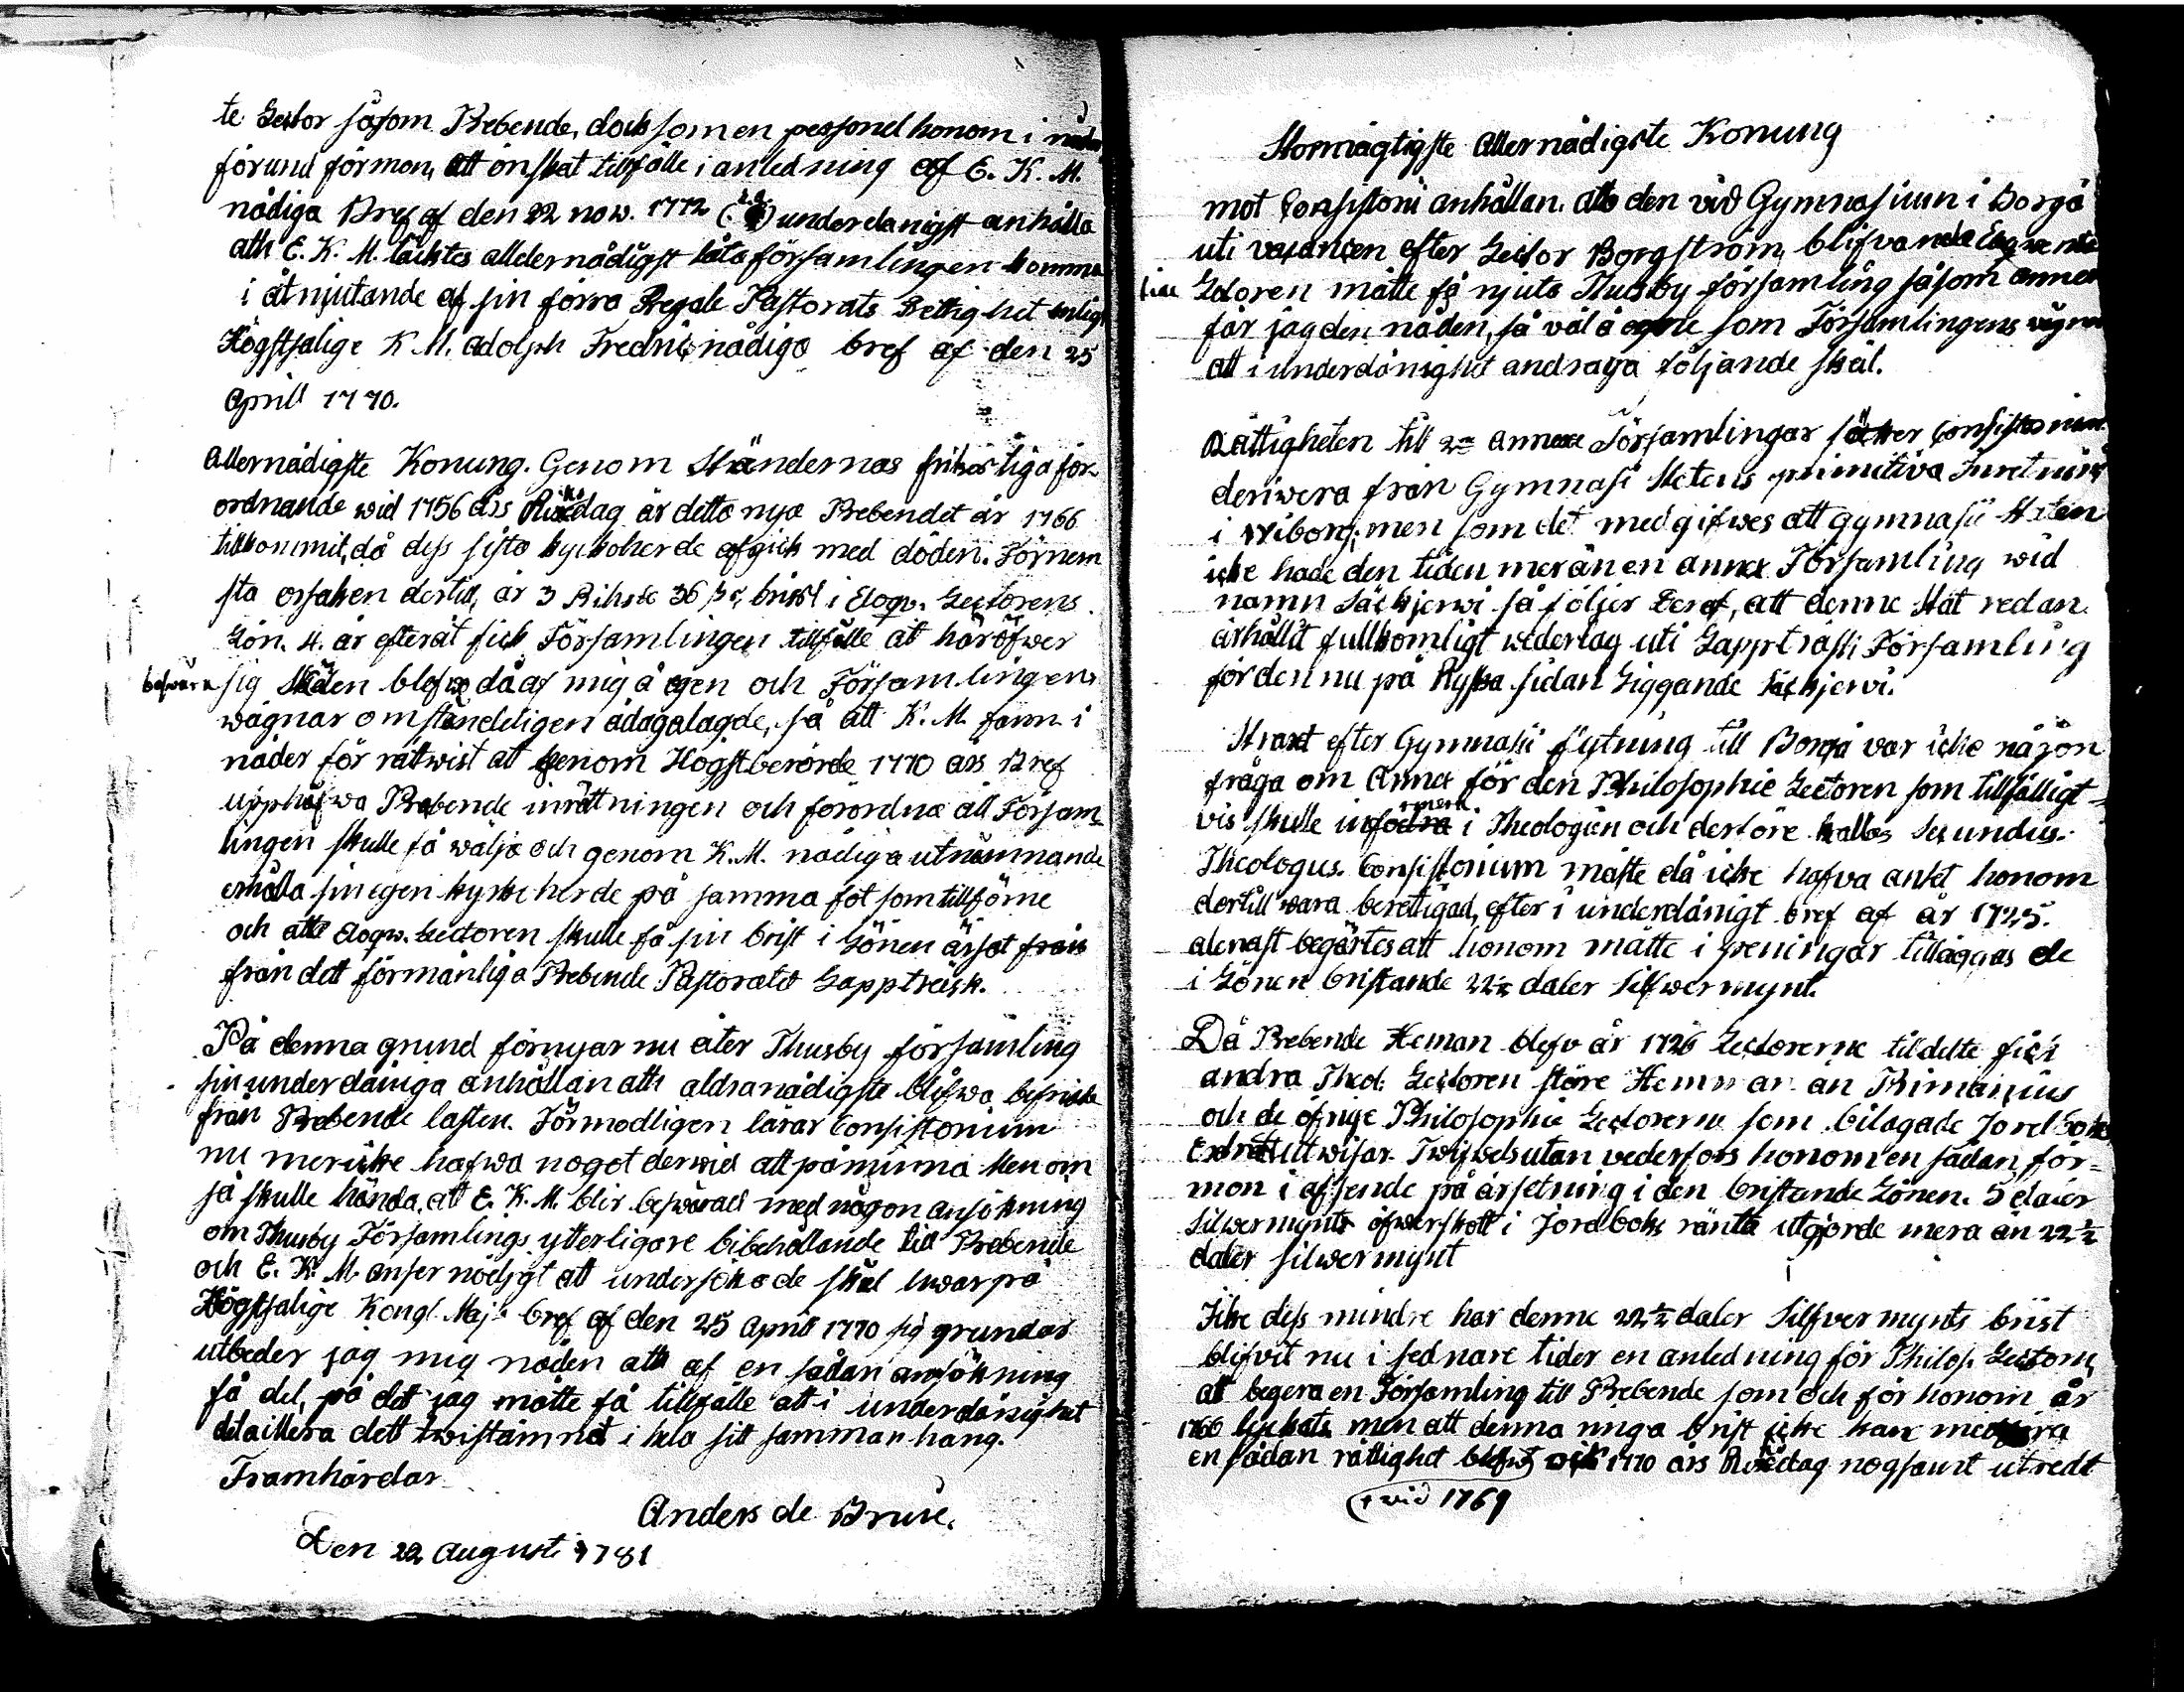 te Lector såsom Prebende, dock som en personel honom i nåder
förund förmon, att önskat tillfälle i anledning af E. K. M.
nådiga Bref af den 22 now. 1772 underdanigst anhålla
att E. K. M. täcktes alldernådigst låta församlingen komma
i åtnjutande af sin förra Regale Pastorats Rettighet enligt
Högstsalige K. M. Adolph Fredrics nådiga bref af den 25
April 1770.
Allernådigste Konung. Genom Ständernas frikostiga för-
ordnande wid 1756 års Riksdag är detta nya Prebendet år 1766
tillkommit, då dess sista kyrkoherde afgick med döden. Förnem
sta orsaken dertill, är 3 Riksd 36 brist i Eloqv. Lectorens
Lön. 4. år efteråt fick Församlingen tillfälle at häröfwer
beswära sig Skälen blefwe då af mig å egen och Församlingens
wägnar omständeligen ådagalagde, så att K. M. fann i
nåder för rätwist at genom Högstberörde 1770 års Bref
upphäfwa Prebende inrättningen och förordna att Försam-
lingen skulle få wälja och genom K. M. nådiga utnämnande
erhålla sin egen kyrkoherde på samma fot som tillförne
och att Eloqw. Lectoren skulle få sin brist i Lönen ärsat från
från dett förmånliga Prebende Pastoratet Lappträsk.
På denna grund förnyar nu åter Thusby församling
sin underdåniga anhållan att aldranådigste blifwa befriade
från Prebende lasten. Förmodligen lärar Consistorium
nu mer icke hafwa nogot derwid att påminna Men om
så skulle hända, att E. K. M. blir beswärad med någon ansökning
om Thusby Församlings ytterligare bibehållande till Prebende
och E. K. M. anser nödigt att undersöka de skäl hwarpå
Högstsalige Kongl. Maj:ts bref af den 25 April 1770 sig grundar
utbeder jag mig nåden att af en sådan ansökning
få del, på det jag måtte få tillfälle att i underdånighet
detaillera dett twistämnet i hela sitt sammanhang.
Framhärdar
Anders de Bruce.
Den 22 Augusti 1781
Stormägtigste Allernådigste Konung
mot Consistorii anhållan. att den vid Gymnasium i Borgå
uti vacancen efter Lector Borgström, blifvande Eloqventiae
Lectoren måtte få njuta Thusby församling såsom annex
får jag den nåden, så väl å egne som Församlingens wägnar
att i underdånighet andraga följande skäl.
Rättigheten till 2ne Annexe Församlingar söker Consistorium
deriwera från Gymnasi Statens primitiva Inretning
i Wiborg; men som det medgifwes att gymnasii Staten
icke hade den tiden mer än en annex Församling wid
namn Säckjerwi så följer deraf, att denne Stat redan
ärhållit fullkomligt wederlag uti Lappträsk Församling
för den nu på Ryska sidan Liggande Säckjerwi.
Straxt efter Gymnasii flytning till Borgå var icke någon
fråga om Annex för den Philosophie Lectoren som tillfälligt-
vis skulle informera i Theologien och dertöre kallas Secundus
Theologus. Consistorium måste då icke hafva ansett honom
dertill wara berettigad, efter i underdånigt bref af år 1725.
alenast begärtes att honom måtte i peningar tilläggas de
i Lönen bristande 22½ daler Silfwermynt.
Då Prebende Heman blefv år 1726 Lectorerne tildelte fick
andra Theol. Lectoren störe Hemman än Primarius
och de öfrige Philosophie Lectorerne som bilagade Jordeboks
Extract utwisar. Twifvelsutan vederfors honom en sådan för=
mon i afseende på ärsetning i den bristande Lönen. 5 daler
Silwermynts öfwerskott i Jordboks ränta utgjorde mera än 22½
daler silwermynt
Icke dess mindre har denne 22½ daler Silfvermynts brist
blifvit nu i sednare tider en anledning för Philos. Lectorn,
att begera en Församling till Prebende som och för honom år
1766 lyckats men att denna ringa brist icke kan medföra
en sådan rättighet blefwit 1770 års Riksdag nogsamt utredt
vid 1769